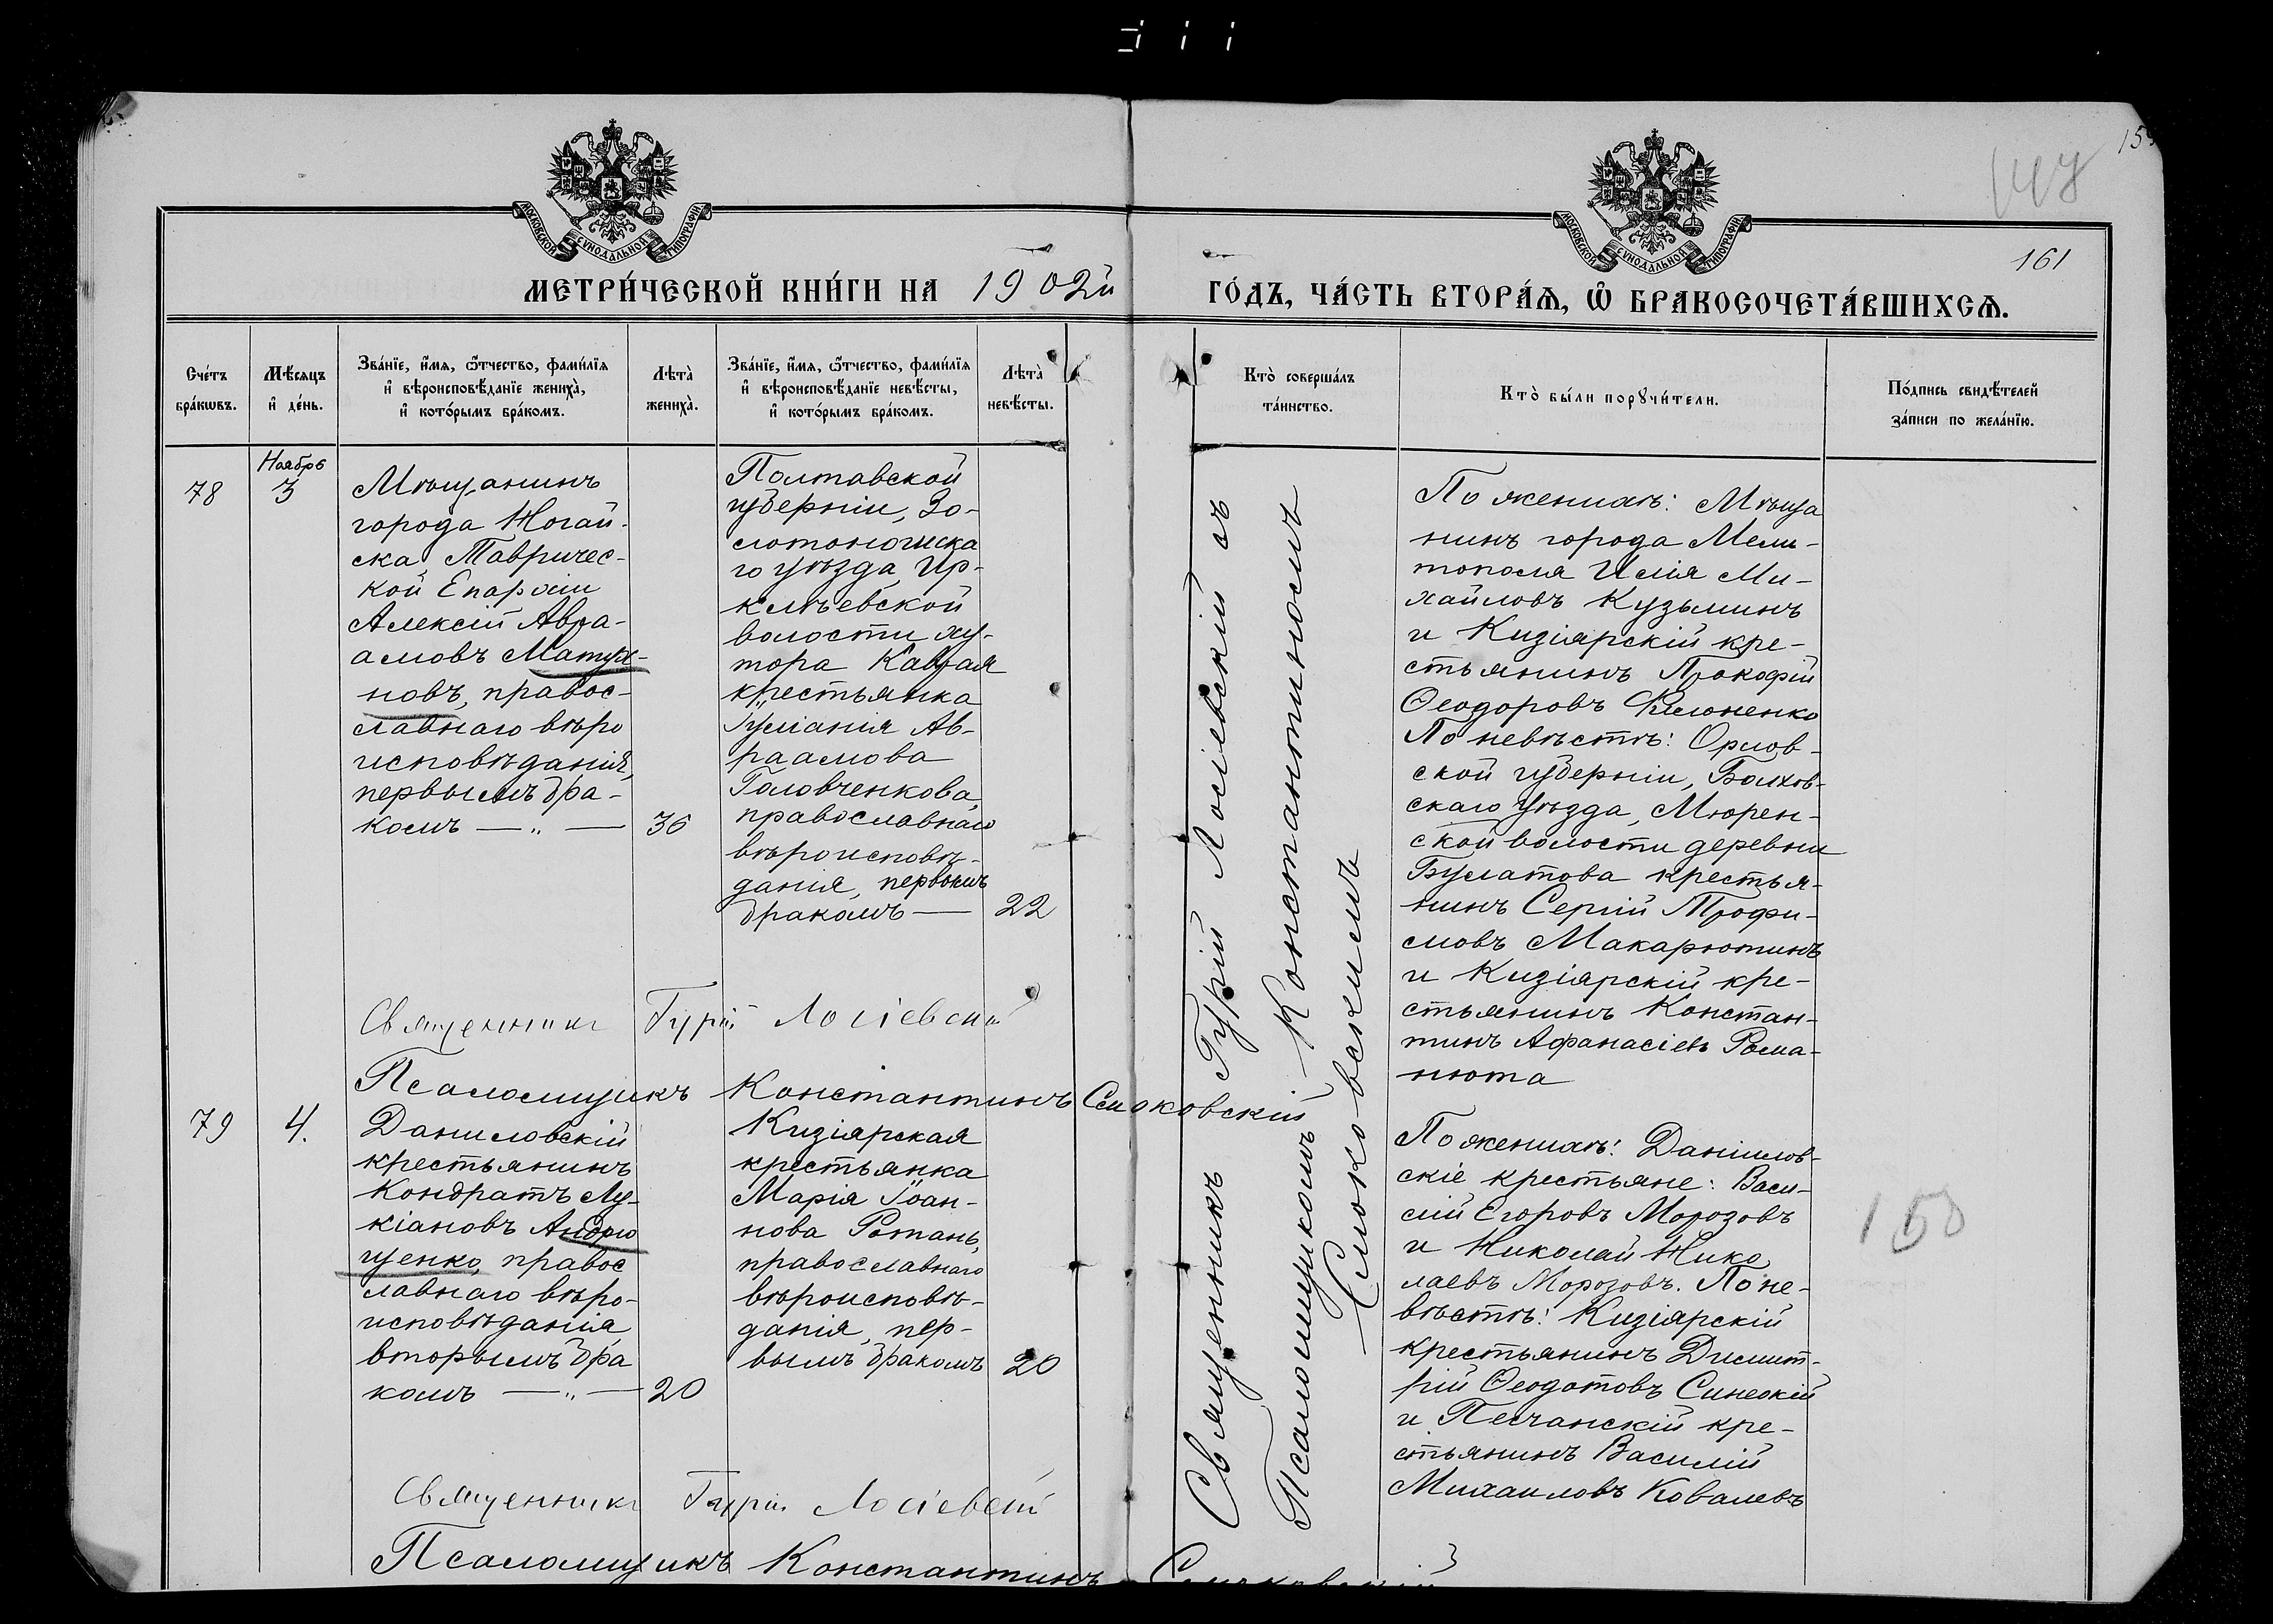 147
159
161
МОСКОВСКОЙ СѴНОДАЛЬНОЙ ТИПОГРАФІИ
МОСКОВСКОЙ СѴНОДАЛЬНОЙ ТИПОГРАФІИ
МЕТРИ́ЧЕСКОЙ КНИ́ГИ НА 1902й ГО́ДЪ, ЧА́СТЬ ВТОРА́Ѧ, Ѽ БРАКОСОЧЕТА́ВШИХСѦ.
Сче́тъ
бра́кѡвъ.
Мѣ́сяцъ
и҆ де́нь.
Зва́нїе, и҆́мя, ѻ҆́тчество, фами́лїя
и҆ вѣроисповѣ́данїе жениха̀,
и҆ кото́рымъ бра́комъ.
Лѣ́та
жениха̀.
Зва́нїе, и҆́мя, ѻ҆́тчество, фами́лїя
и҆ вѣроисповѣ́данїе невѣ́сты,
и҆ кото́рымъ бра́комъ.
Лѣ́та
невѣ́сты.
Кто̀ соверша́лъ
та́инство.
Кто̀ бы́ли порꙋчи́тели.
По́дпись свидѣ́телей
за́писи по жела́нїю.
78
Ноябрь
3
Мѣщанинъ
города Ногай-
ска, Тавричес-
кой Епархіи
Алексій Авра-
амовъ Матух-
новъ, правос-
лавнаго вѣро
исповѣданія,
первымъ бра-
комъ — „ — 36
Полтавской
губерніи, Зо-
лотоношска
го уѣзда, Ир-
клѣевской
волости ху-
тора Каврая
крестьянка
Іуліанія Ав-
раамова
Головченкова,
православнаго
вѣроисповѣ-
данія, первымъ
бракомъ — 22
Священникъ Гурій Лосіевскій съ
Псаломщикомъ Константиномъ
Слюковскимъ
По женихѣ: Мѣща
нинъ города Мели-
тополя Илія Ми-
хайловъ Кузьминъ
и Кизіярскій кре-
стьянинъ Прокофій
Ѳеодоровъ Филоненко
По невѣстѣ: Орлов-
ской губерніи, Болхов-
скаго уѣзда, Мюрен-
ской волости деревни
Булатова крестья-
нинъ Сергій Трофи-
мовъ Макарютинъ
и Кизіярскій кре-
стьянинъ Констан-
тинъ Афанасіевъ Рома-
нюта
Священникъ Гурій Лосіевскій
Псаломщикъ Константинъ Слюковскій
79
4.
Даниловскій
крестьянинъ
Кондратъ Лу-
кіановъ Андрю
щенко, правос
лавнаго вѣро-
исповѣданія
вторымъ бра
комъ — „ — 20
Кизіярская
крестьянка
Марія Іоан-
нова Ротань,
православнаго
вѣроисповѣ-
данія, пер-
вымъ бракомъ 20
По женихѣ: Данилов-
скіе крестьяне: Васи-
лій Егоровъ Морозовъ
и Николай Нико
лаевъ Морозовъ. По не-
вѣстѣ: Кизіярскій
крестьянинъ Димит-
рій Ѳеодотовъ Синеокій
и Песчанскій кре-
стьянинъ Василій
Михаиловъ Ковалевъ
150
Священникъ Гурій Лосіевскій
Псаломщикъ Константинъ Слюковскій